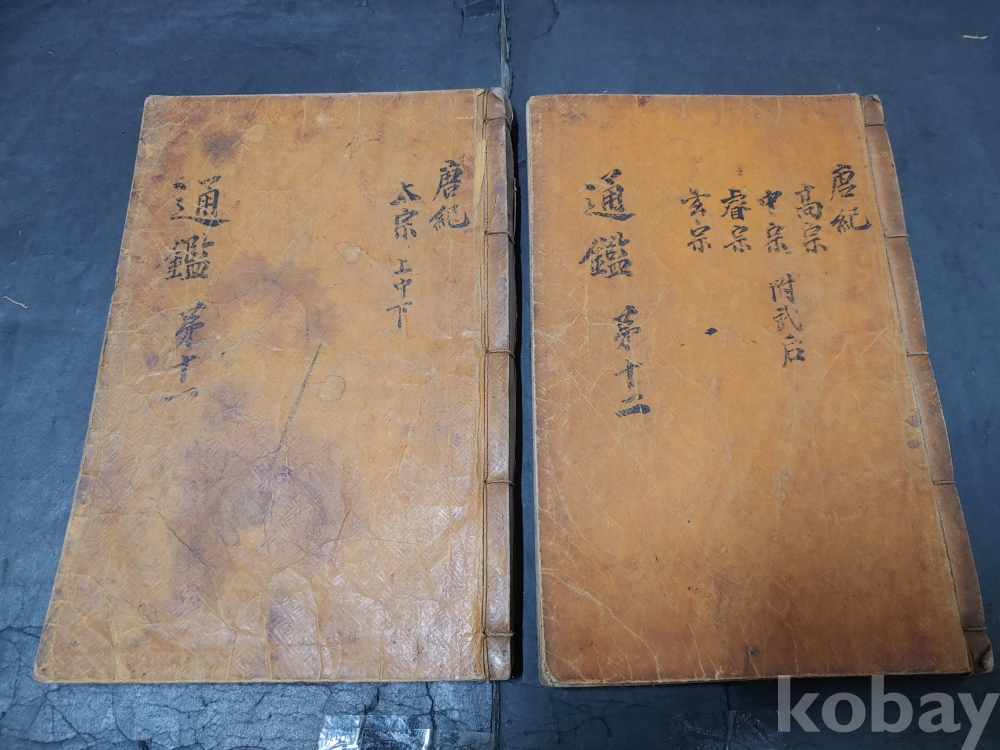 唐紀
太宗 上中下
通鑑 苐十一
唐紀
高宗
中宗 附武后
睿宗
玄宗
通鑑 苐十二
kobay